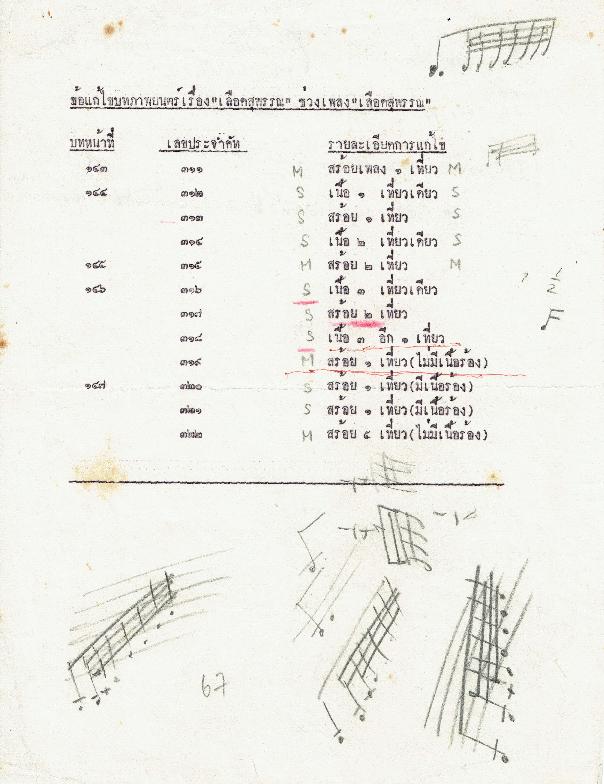 ข้อแก้ไขบทภาพยนตร์เรื่อง"เลือดสุพรรณ" ช่วงเพลง"เลือดสุพรรณ"
บทหน้าที่ เลขประจำคัท รายละเอียดการแก้ไข
๑๔๓ ๓๑๑ M สร้อยเพลง ๑ เที่ยว M
๑๔๔ ๓๑๒ S เนื้อ ๑ เที่ยวเดียว S
๓๑๓ S สร้อย ๑ เที่ยว S
๓๑๔ S เนื้อ ๒ เที่ยวเดียว S
๑๔๕ ๓๑๕ M สร้อย ๒ เที่ยว M
๑๔๖ ๓๑๖ S เนื้อ ๓ เที่ยวเดียว
๓๑๗ S สร้อย ๒ เที่ยว
๓๑๘ S เนื้อ ๓ อีก ๑ เที่ยว
๓๑๙ M สร้อย ๑ เที่ยว(ไม่มีเนื้อร้อง)
๑๔๗ ๓๒๐ S สร้อย ๑ เที่ยว(มีเนื้อร้อง)
๓๒๑ S สร้อย ๑ เที่ยว(มีเนื้อร้อง)
๓๒๒ M สร้อย ๕ เที่ยว(ไม่มีเนื้อร้อง)
67